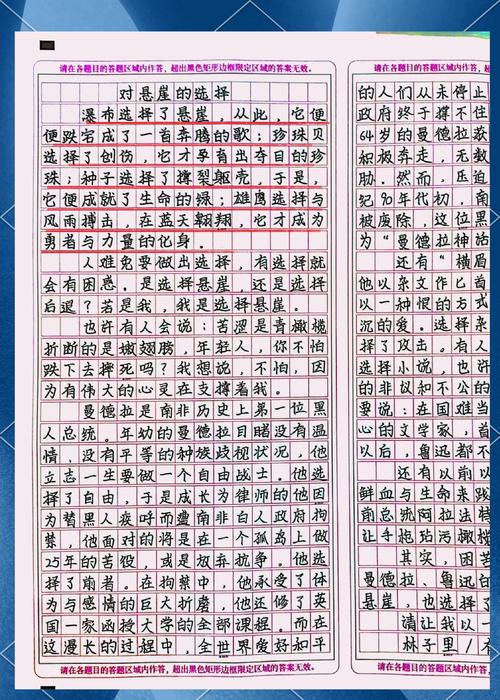 请在各题目的答题区域内作答，超出黑色矩形边框限定区域的答案无效。
对悬崖的选择
瀑布选择了悬崖，从此，它便
便跌宕成了一首奔腾的歌；珍珠贝
选择了创伤，它才孕育出夺目的珍
珠；种子选择了撑裂躯壳，于是，
它便成就了生命的绿；雄鹰选择与
风雨搏击，在蓝天翱翔，它才成为
勇者与力量的化身。
人难免要做出选择，有选择就
会有困惑。是选择悬崖，还是选择
后退？若是我，我是选择悬崖。
也许有人会说：苦涩是青橄榄
折断的是嫩翅膀，年轻人，你不怕
跌下去摔死吗？我想说，不怕，因
为有伟大的心灵在支撑着我。
曼德拉是南非历史上第一位黑
人总统。年幼的曼德拉目睹没有温
情、没有平等的种族歧视状况，他
立志一生要做一个自由战士。他选
择了自由，于是成长为律师的他因
为替黑人疾呼而遭南非白人政府拘
禁，他面对的将是在一个孤岛上做
25年的苦役，或是放弃抗争。他选
择了前者。在拘禁中，他承受了体
为与感情的巨大折磨，他还修了英
国一家函授大学的全部课程。而在
这漫长的过程中，全世界爱好和平
请在各题目的答题区域内作答，超出黑色矩形边框限定区域的答案无效。
请在各题目的答题区域内作答，
的人们从未停止
政府终于撑不住
64岁的曼德拉获
积极奔走，无数
胁。然而，压迫
纪90年代初，南
被废除，这位黑
为“曼德拉神话
还有“横眉
他以杂文作匕首
以一种恨的方式
沉的爱。选择杂
择了攻击。有人
选择小说，也许
的非议和不公的
要说：在国难当
心的文学家，首
以后，鲁迅都不
还有以前以
鲜血与生命来践
前总统阿拉法特
让手枪玷污橄榄
其实，困苦
曼德拉、鲁迅的
悬崖，也选择了
请让我以一
林子里
请在各题目的答题区域内作答，